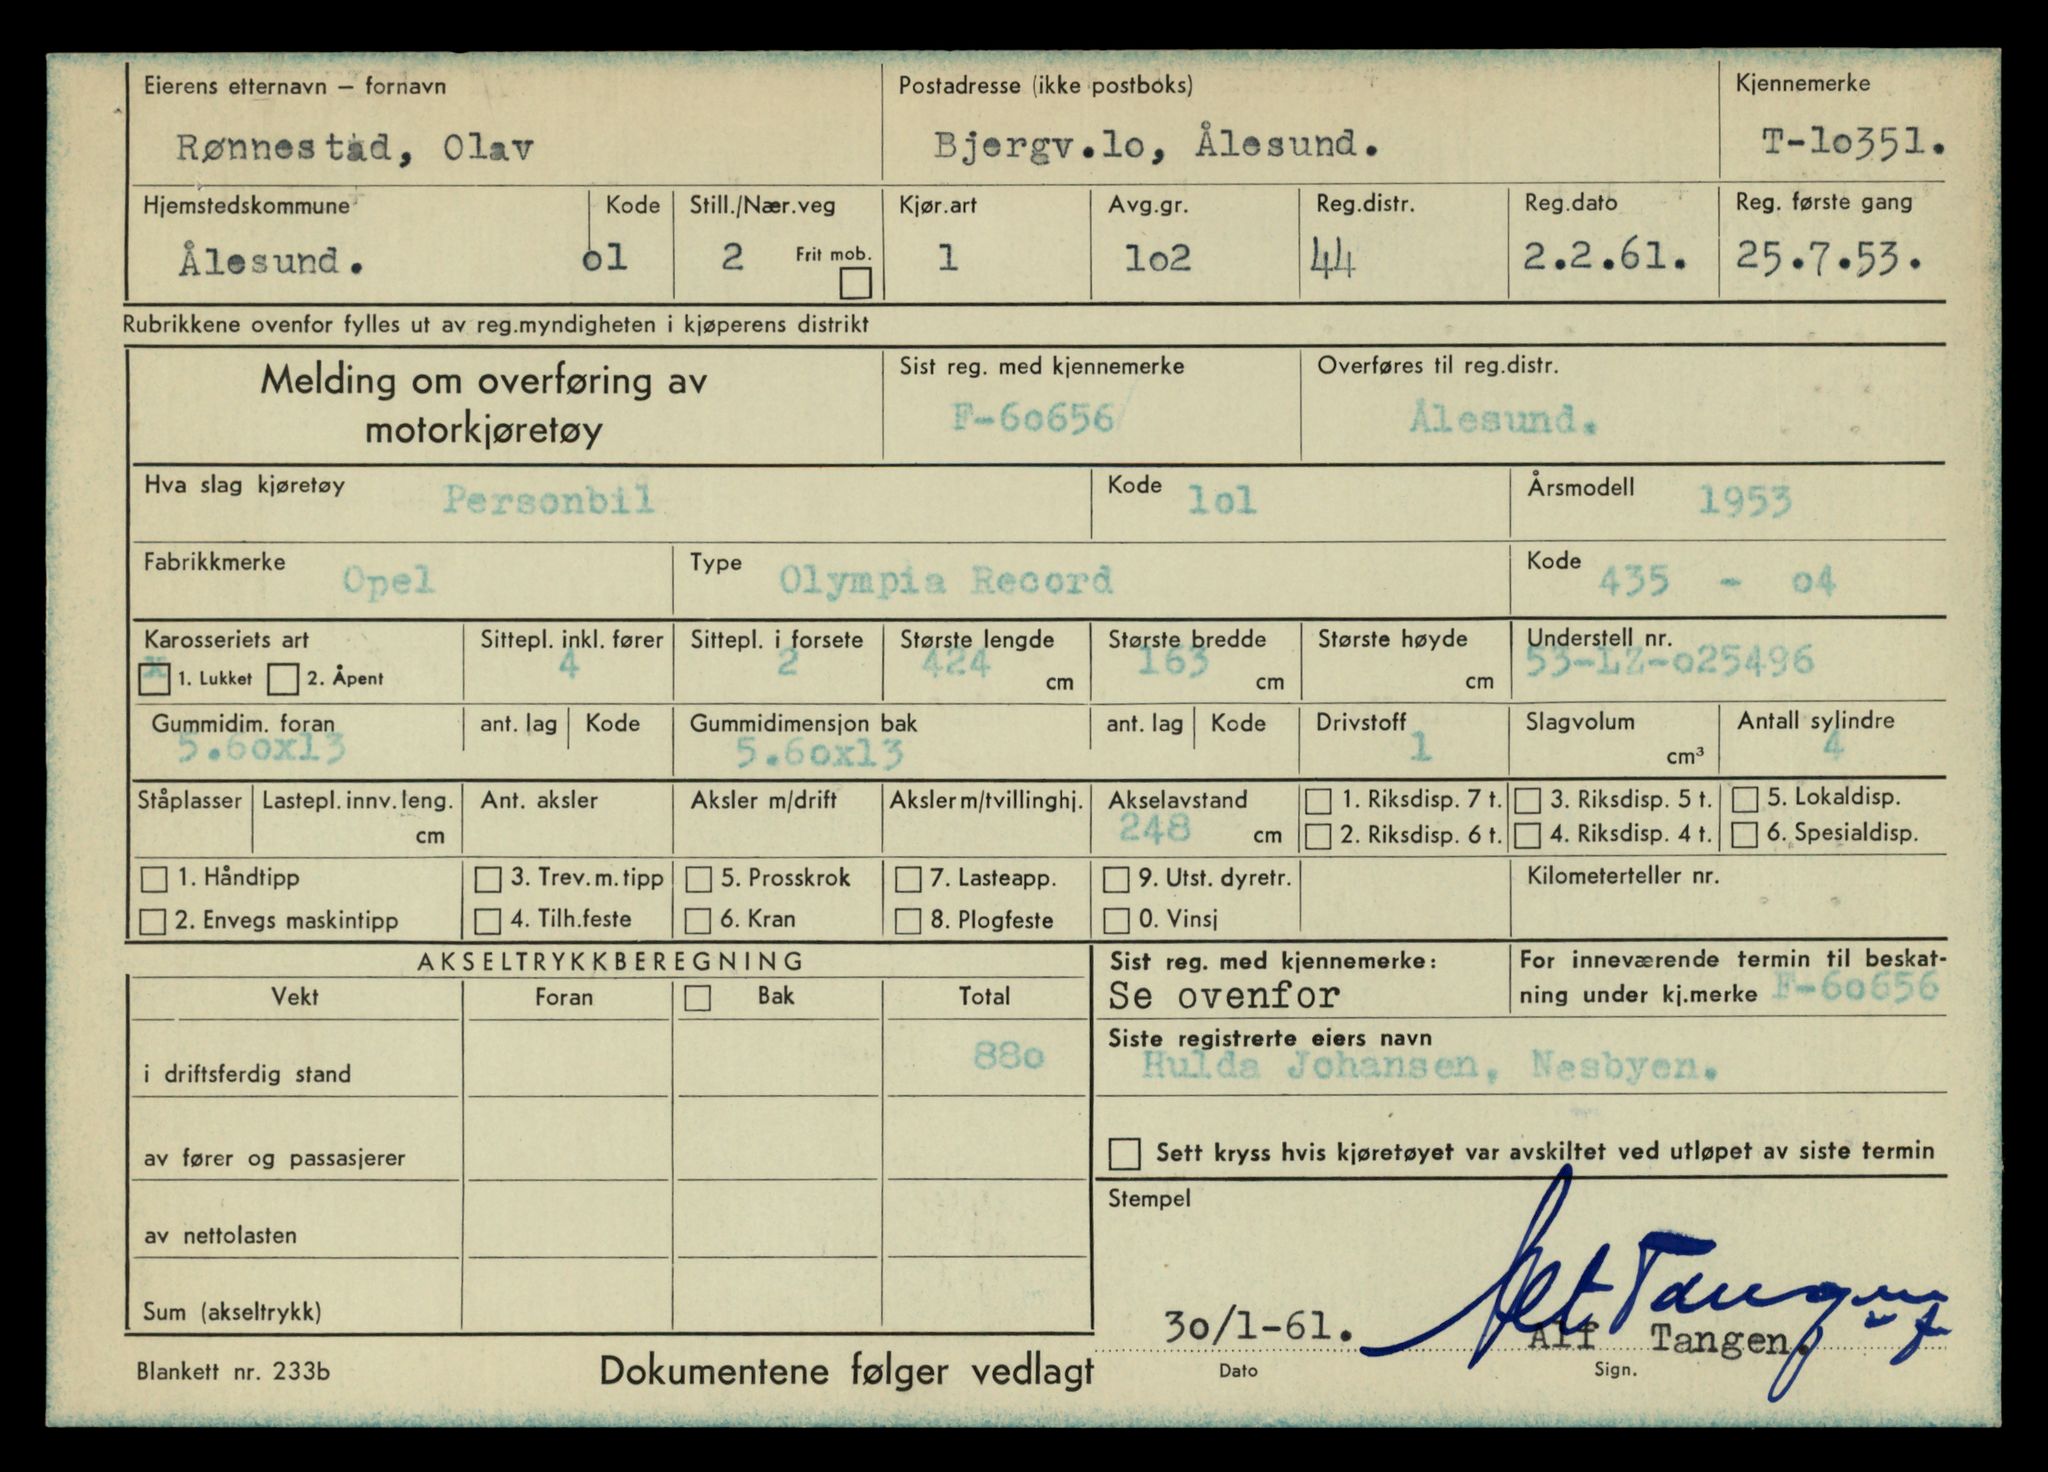 Eierens etternavn – fornavn Postadresse (ikke postboks) Kjennemerke
Rønnestad, Olav Bjergv.lo, Ålesund. T-lo351.
Hjemstedskommune Kode Still./Nær.veg Kjør.art Avg.gr. Reg.distr. Reg.dato Reg. første gang
Ålesund. ol 2 Frit mob. 1 lo2 44 2.2.61. 25.7.53.
Rubrikkene ovenfor fylles ut av reg.myndigheten i kjøperens distrikt
Melding om overføring av Sist reg. med kjennemerke Overføres til reg.distr.
motorkjøretøy F-6o656/ Ålesund.
Hva slag kjøretøy Personbil Kode lol Årsmodell 1953
Fabrikkmerke Opel Type Olympia Record Kode 435 - o4
Karosseriets art Sittepl. inkl. fører Sittepl. i forsete Største lengde Største bredde Største høyde Understell nr.
x 1. Lukket 2. Åpent 4 2 424 cm 163 cm cm 53-LZ-o25496
Gummidim. foran ant. lag Kode Gummidimensjon bak ant. lag Kode Drivstoff Slagvolum Antall sylindre
5.6ox13 5.6ox13 1 cm³ 4
Ståplasser Lastepl. innv. leng. Ant. aksler Aksler m/drift Aksler m/tvillinghj. Akselavstand 1. Riksdisp. 7 t. 3. Riksdisp. 5 t. 5. Lokaldisp.
cm 248 cm 2. Riksdisp. 6 t. 4. Riksdisp. 4 t. 6. Spesialdisp.
1. Håndtipp 3. Trev. m. tipp 5. Prosskrok 7. Lasteapp. 9. Utst. dyretr. Kilometerteller nr.
2. Envegs maskintipp 4. Tilh.feste 6. Kran 8. Plogfeste 0. Vinsj
AKSELTRYKKBEREGNING Sist reg. med kjennemerke: For inneværende termin til beskat-
Vekt Foran Bak Total Se ovenfor ning under kj.merke F-6o656
Siste registrerte eiers navn
i driftsferdig stand 88o Hulda Johansen, Nesbyen.
av fører og passasjerer Sett kryss hvis kjøretøyet var avskiltet ved utløpet av siste termin
Stempel
av nettolasten
Alf Tangen
Sum (akseltrykk) 3o/1-61. Alf Tangen.
Blankett nr. 233b Dokumentene følger vedlagt Dato Sign.